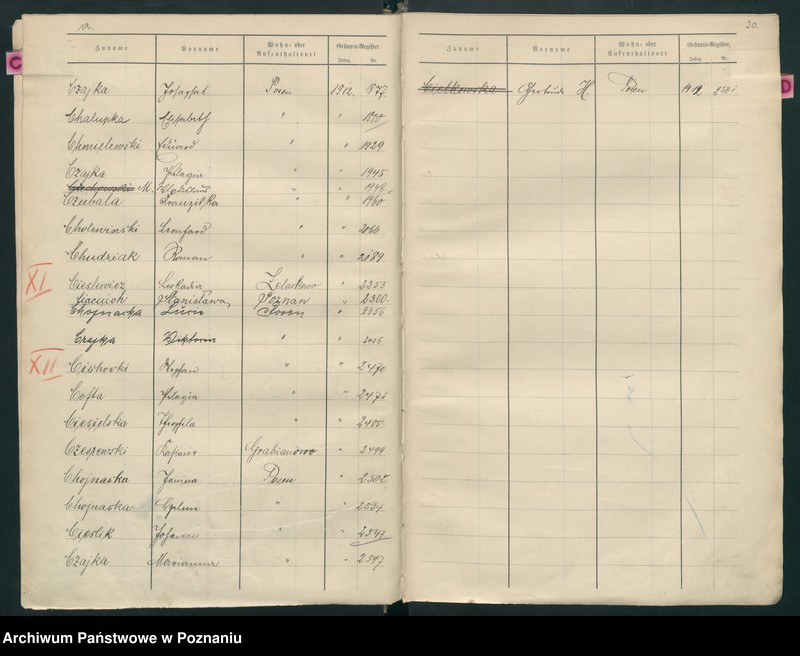 13.
Zuname Vorname Wohn- oder Aufenthaltsort Geburts-Register
Jahrg. Nr.
C
Czajka Josaphat Posen 1912. 1877
Chalupka Elisabeth " "
Chmielewski Eduard " " 1929
Czajka Pelagia " " 1945
M. " "
Czubala Franziska " " 1960
Cholewinski Leonhard " "
Chudziak Roman " " 2189
XI
Cieslewicz Leokadia " 2253
Stanislawa, Poznan " 2300
Chojnacka Posen " 2356
Czajka Wiktoria " "
XII
Cichocki Stefan " " 2470
Cofta Pelagia " " 2471
Ciesielska Theofila " "
Czeszewski Grabianowo " 2499
Chojnacka Janina Posen " 2502
Chojnacka " " 2534
Cieslik Johann " " 2543
Czajka Marianna " " 2547
30.
Zuname Vorname Wohn- oder Aufenthaltsort Geburts-Register
Jahrg. Nr.
D
Cielkowska Gertrude H. Posen 1912
Archiwum Państwowe w Poznaniu